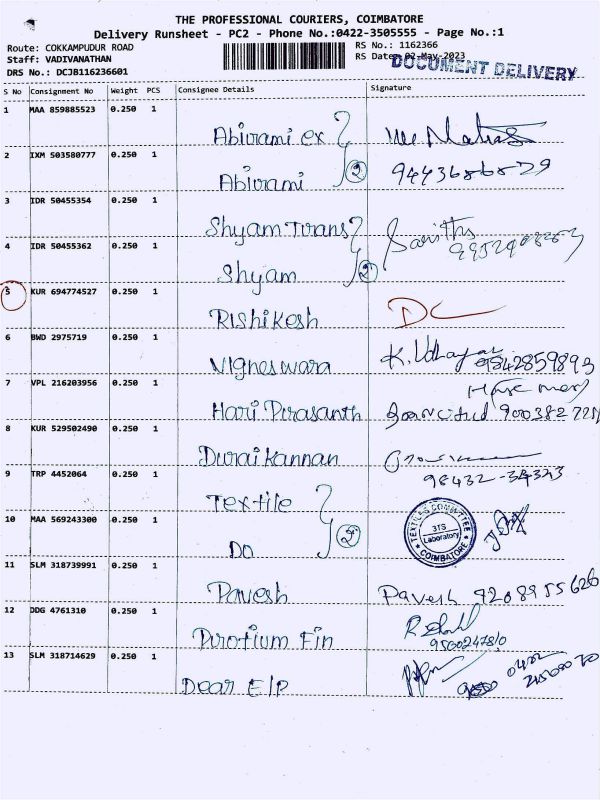 THE PROFESSIONAL COURIERS, COIMBATORE
Delivery Runsheet - PC2 - Phone No.:0422-3505555 - Page No.:1
Route: COKKAMPUDUR ROAD
RS No.: 1162366
Staff: VADIVANATHAN
RS Date: 02-May-2023
DOCUMENT DELIVERY
DRS No.: DCJB116236601
S No Consignment No Weight PCS Consignee Details Signature
1 MAA 859885523 0.250 1 Abirami ex
2 IXM 503580777 0.250 1 Abirami 2 9443686829
3 IDR 50455354 0.250 1 Shyam Trans
4 IDR 50455362 0.250 1 Shyam 2
5 KUR 694774527 0.250 1 Rishikesh DC
6 BWD 2975719 0.250 1 Vigneswara 9842859893
7 VPL 216203956 0.250 1 Hari Prasanth
8 KUR 529502490 0.250 1 Durai Kannan 98432-34343
9 TRP 4452064 0.250 1 Textile
10 MAA 569243300 0.250 1 Do 2
TEXTILES COMMITTEE
3TS
Laboratory
COIMBATORE
11 SLM 318739991 0.250 1 Pavesh Pavesh
12 DDG 4761310 0.250 1 Protium Fin 9500247810
13 SLM 318714629 0.250 1 Dear E/P